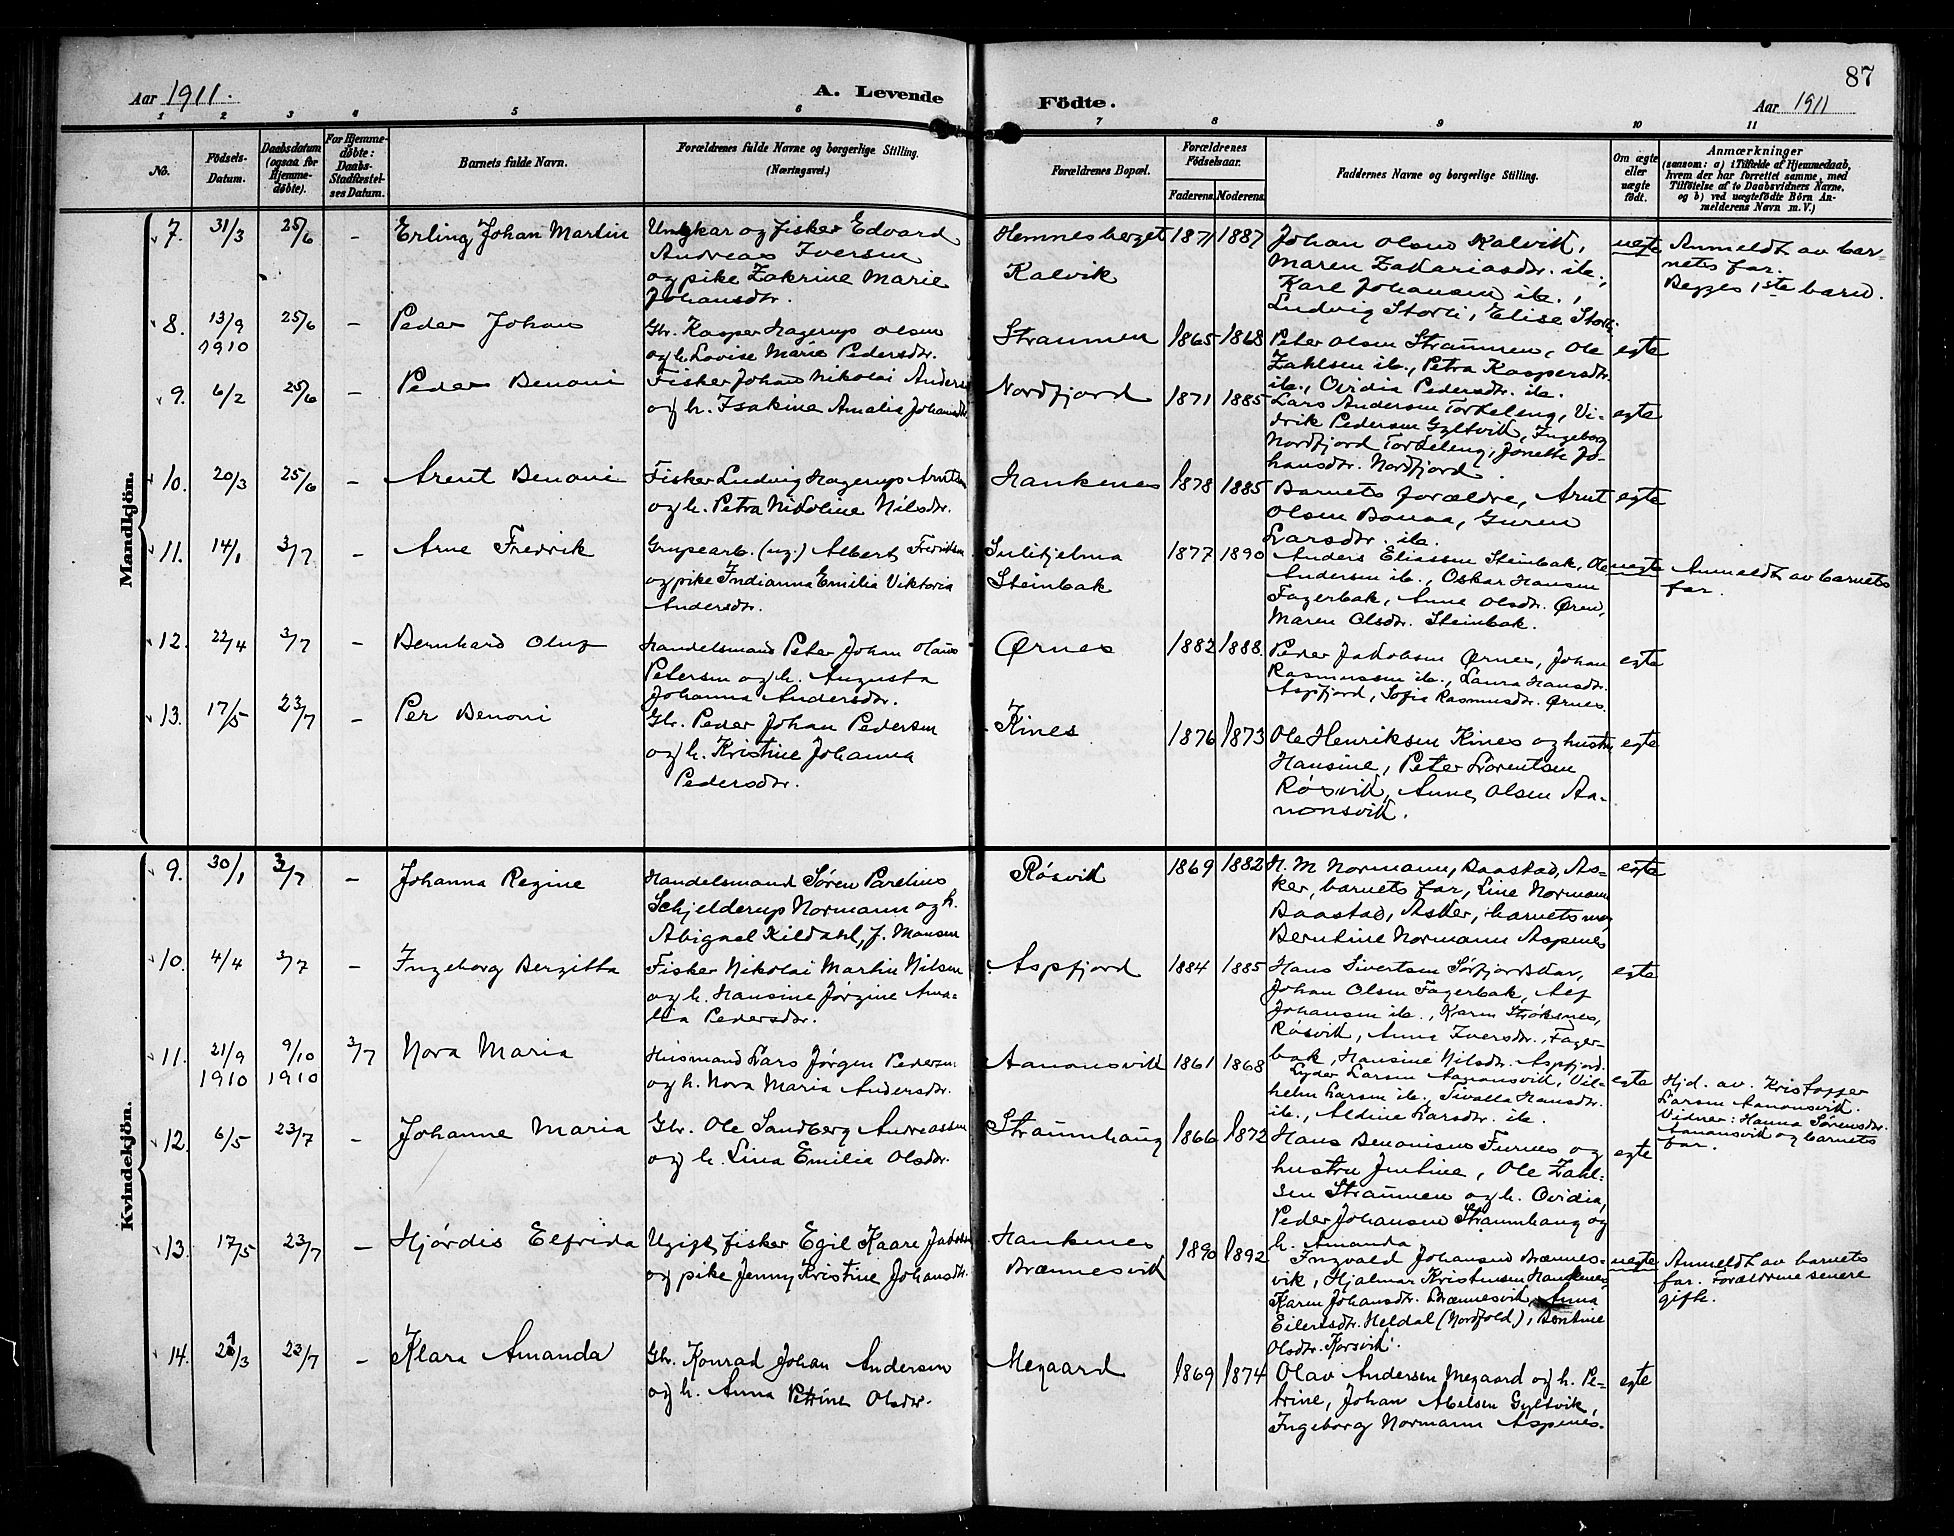 87
Aar 1911.
A. Levende Födte.
Aar 1911
1 2 3 4 5 6 7 8 9 10 11
No.
Födsels-Datum.
Daabsdatum (ogsaa for Hjemme-døbte).
For Hjemme-døbte: Daabs-Stadfæstel-ses Datum.
Barnets fulde Navn.
Forældrenes fulde Navne og borgerlige Stilling. (Næringsvei.)
Forældrenes Bopæl.
Forældrenes Födselsaar.
Faderens. Moderens.
Faddernes Navne og borgerlige Stilling.
Om ægte eller uægte födt.
Anmærkninger
(saasom: a) i Tilfælde af Hjemmedaab, hvem der har forrettet samme, med Tilföielse af to Daabsvidners Navne, og b) ved uægtefödte Börn An-melderens Navn m. V.)
Mandkjön.
7. 31/3 25/6 - Erling Johan Martin
Ungkar og fisker Edvard
Andreas Iversen
og pike Zakrine Marie
Johansdtr.
Hemnesberget
Kalvik
1871 1887
Johan Olsen Kalvik,
Maren Zakariasdtr. ib.,
Karl Johansen ib.,
Ludvig Storli, Elise Storli
uegte
Anmeldt av bar-
nets far.
Begges 1ste barn.
8. 13/9 1910 25/6 - Peder Johan
Gbr. Kasper Hagerup Olsen
og h. Lovise Marie Pedersdtr.
Straumen
1865 1868
Peter Olsen Straumen, Ole
Zahlsen ib., Petra Kaspersdtr.
ib., Ovidia Pedersdtr. ib.
egte
9. 6/2 25/6 - Peder Benoni
Fisker Johan Nikolai Anders
og h. Isakine Amalia Johansdtr
Nordfjord
1871 1885
Lars Andersen Torkeleng, Vi-
drik Pedersen Gyltvik, Ingeborg
Nordfjord Torkeleng, Jonette Jo-
hansdtr. Nordfjord.
egte
10. 20/3 25/6 - Arent Benoni
Fisker Ludvig Hagerup Arntsen
og h. Petra Nikoline Nilsdtr.
Hankenes
1878 1885
Barnets forældre, Arnt
Olsen Bonaa, Guren
Larsdtr. ib.
egte
11. 14/1 3/7 - Arne Fredrik
Grupearb. (ug.) Albert Fredriksen
og pike Indianna Emilia Viktoria
Andersdtr.
Sulitjelma
Steinbak
1877 1890
Anders Eliassen Steinbak, Ole
Andersen ib., Oskar Hansen
Fagerbak, Anne Olsdtr. Øren,
Maren Olsdtr. Steinbak.
uegte
Anmeldt av barnets
far.
12. 22/4 3/7 - Bernhard Oluf
Handelsmand Peter Johan Olaus
Petersen og h. Augusta
Johanna Andersdtr.
Ørnes
1882 1888.
Peder Jakobsen Ørnes, Johan
Rasmussen ib., Laura Hansdtr.
Aspfjord, Sofie Rasmusdtr. Ørnes.
egte
13. 17/5 23/7 - Per Benoni
Gbr. Peder Johan Pedersen
og h. Kristine Johanna
Pedersdtr.
Kines
1876 1873
Ole Henriksen Kines og hustru
Hansine, Peter Lorentsen
Røsvik, Anne Olsen Aa-
nonsvik.
egte
Kvindekjön.
9. 30/1 3/7 - Johanna Regine
Handelsmand Søren Parelius
Schjelderup Normann og h.
Abigael Kildahl, f. Monsen
Røsvik
1869 1882
H. M. Normann, Baastad, As-
ker, barnets far, Line Normann
Baastad, Asker, barnets mor
Berntine Normann Aspenes
egte
10. 4/4 3/7 - Ingeborg Bergitta
Fisker Nikolai Martin Nilsen
og h. Hansine Jørgine Ama-
lia Pedersdtr.
Aspfjord
1884 1885
Hans Sivertsen Sørfjordskar,
Johan Olsen Fagerbak, Alf
Johansen ib., Karen Strøksnes,
Røsvik, Anna Iversdtr. Fager-
bak, Hansine Nilsdtr. Aspfjord.
egte
11. 21/9 1910 9/10 1910 3/7 Nora Maria
Husmand Lars Jørgen Pedersen
og h. Nora Maria Andersdtr.
Aanonsvik
1861 1868
Lyder Larsen Aanonsvik, Vil-
helm Larsen ib., Sivalla Hansdtr.
ib., Aldine Larsdtr. ib.
egte
Hjd. av. Kristoffer
Larsen Aanonsvik.
Vidner: Hanna Sørensdtr.
Aanonsvik og barnets
far.
12. 6/5 23/7 - Johanne Maria
Gbr. Ole Sandberg Andreassen
og h. Lina Emilia Olsdtr.
Straumhaug
1866 1872
Hans Benonisen Furnes og
hustru Justine, Ole Zahl-
sen Straumen og h. Ovidia,
Peder Johansen Straumhaug og
h. Amanda
egte
13. 17/5 23/7 - Hjørdis Elfrida
Ugift fisker Egil Kaare Jakobsen
og pike Jenny Kristine Johansdtr.
Hankenes
Brænnesvik
1890 1892
Ingvald Johansen Brænnes-
vik, Hjalmar Kristensen Hankenes
Karen Johansdtr. Brænnesvik, Anna
Eilertsdtr. Heldal (Nordfold), Berntine
Olsdtr. Korsvik.
uegte
Anmeldt av barnets
far. Forældrene senere
gifte.
14. 21/3 23/7 - Klara Amanda
Gbr. Konrad Johan Andersen
og h. Anna Petrine Olsdtr.
Megaard
1869 1874
Olav Andersen Megaard og h. Pe-
trine, Johan Abelsen Gyltvik,
Ingeborg Normann Aspenes.
egte